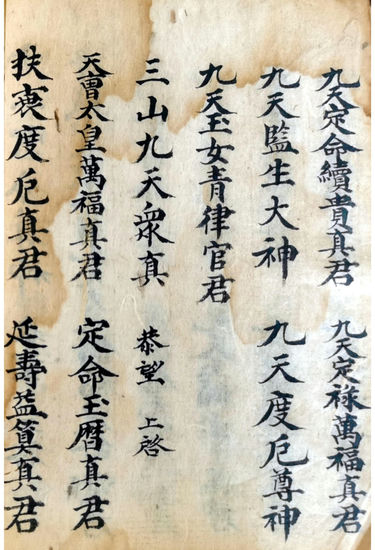 九天定命續貴真君 九天定祿萬福真君
九天監生大神 九天度厄尊神
九天玉女青律官君
三山九天眾真 恭望 上啓
天曹太皇萬福真君 定命玉曆真君
扶衰度厄真君 延壽益算真君